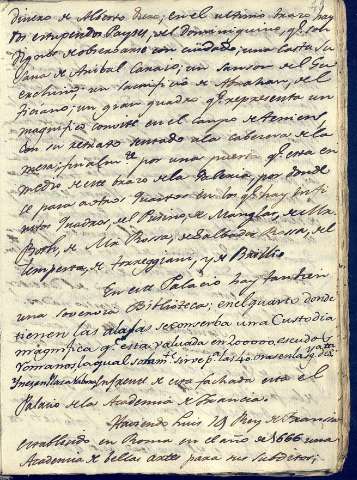 dinero de Alberto Duro; en el ultimo brazo hay
dos estupendo Payses, del Domeniquino qe. son
dignos de observarse con cuidado; una Casta Su-
sana de Anibal Caracio; un Sanson del Gu-
erchino; un sacrificio de Abrahan, del
Ticiano; un gran quadro qe. representa un
magnifico convite en el campo de
con su retrato sentado a la cabecera de la
mesa; finalmte. por una puerta qe. esta en
medio de este brazo de la Galeria, por donde
se para a otros Quartos en los qe. hay infi-
nitos Quadros, del Pusino, de
de Salbador Rossa, del
Tempesta, de y de Brillo
En este Palacio hay tambien
una sovervia Biblioteca; en el quarto donde
tienen las se conserba una Custodia
magnifica qe. esta valuada en 200000, escudos
romanos, la qual solamte. sirve pa. las 40. oras
enfrente de esta fachada esta el
Palacio de la Academia de Francia.
Haviendo Luis 14 Rey de Francia
establecido en Roma en el año de 1666 una
Academia de bellas artes para sus subditos;